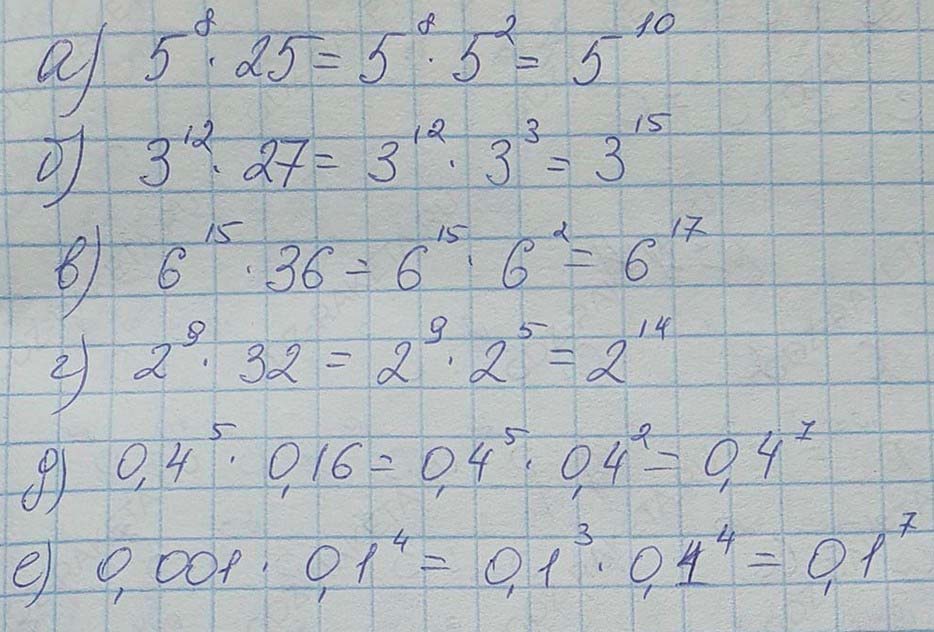 а) 5⁸ · 25 = 5⁸ · 5² = 5¹⁰
б) 3¹² · 27 = 3¹² · 3³ = 3¹⁵
в) 6¹⁵ · 36 = 6¹⁵ · 6² = 6¹⁷
г) 2⁹ · 32 = 2⁹ · 2⁵ = 2¹⁴
д) 0,4⁵ · 0,16 = 0,4⁵ · 0,4² = 0,4⁷
е) 0,001 · 0,1⁴ = 0,1³ · 0,1⁴ = 0,1⁷